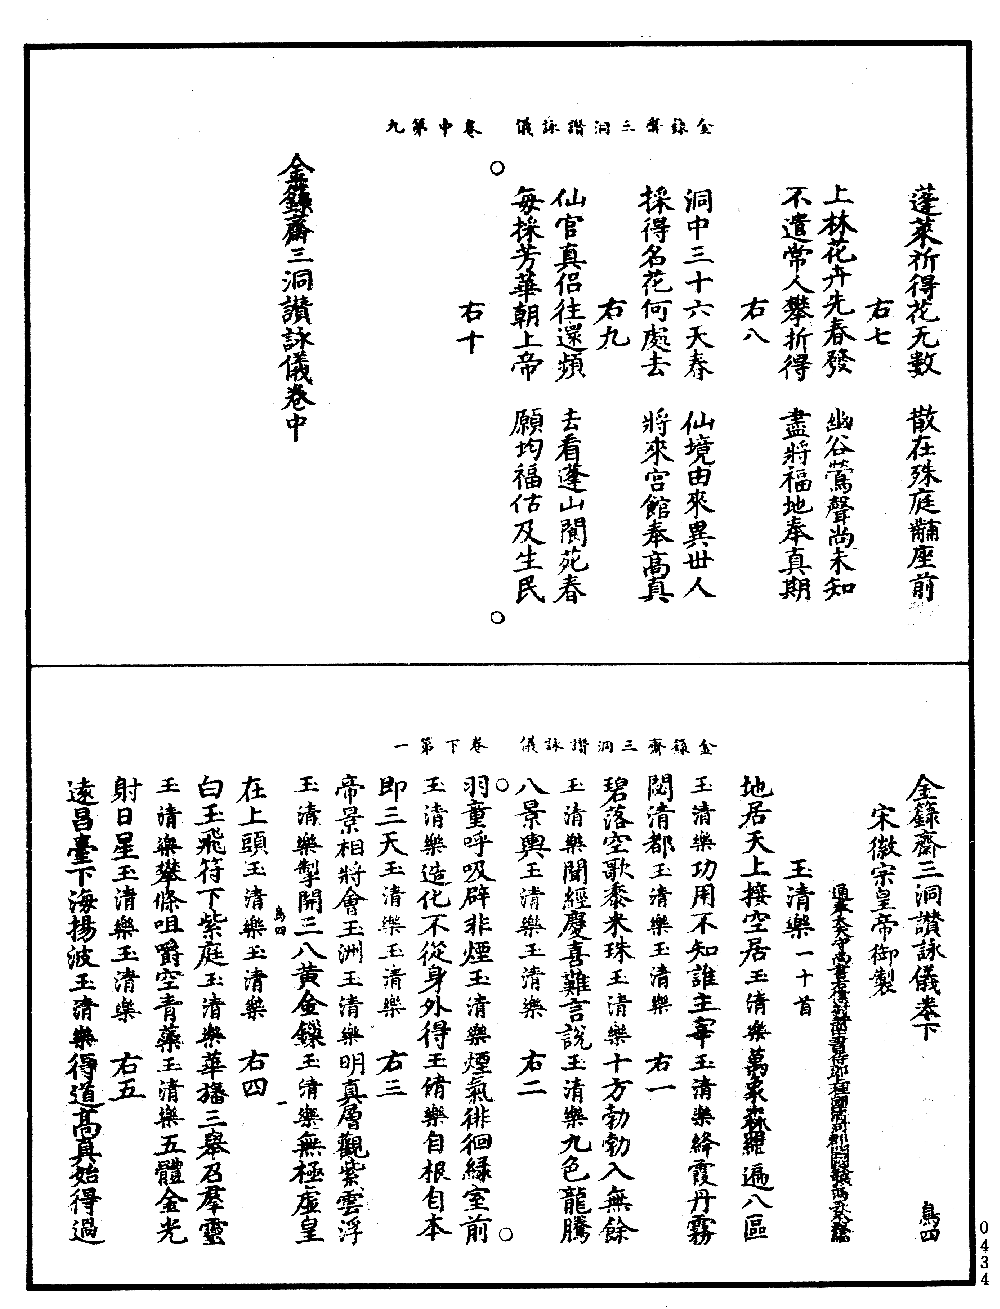 金籙齋三洞讚詠儀　卷中第九
蓬萊祈得花无數　散在殊庭黼座前
右七
上林花卉先春發　幽谷鶯聲尚未知
不遣常人攀折得　盡將福地奉真期
右八
洞中三十六天春　仙境由來異丗人
採得名花何處去　將來宮館奉高真
右九
仙官真侣往還頻　去看蓬山閬苑春
每採芳華朝上帝　願均福估及生民
右十
金籙齋三洞讚詠儀卷中
金籙齊三洞讚詠儀　卷下第一
金籙齋三洞讚詠儀卷下　鳥四
宋徽宗皇帝御製
玉清樂一十首
地居天上接空居玉清樂萬象森羅遍八區
玉清樂功用不知誰主宰玉清樂絳霞丹霧
閟清都玉清樂玉清樂　右一
碧落空歌黍米珠玉清樂十方勃勃入無餘
玉清樂聞經慶喜難言說玉清樂九色龍騰
八景輿玉清樂玉清樂　右二
羽童呼吸辟非煙玉清樂煙氣徘徊綠室前
玉清樂造化不從身外得玉清樂自根自本
即三天玉清樂玉清樂　右三
帝景相將會玉洲玉清樂明真層觀紫雲浮
玉清樂掣開三八黃金鏁玉清樂無極虛皇
在上頭玉清樂玉清樂　右四
鳥四　一
白玉飛符下紫庭玉清樂華旛三舉召羣靈
玉清樂攀條咀嚼空青蘂玉清樂五體金光
射日星玉清樂玉清樂　右五
遠昌臺下海揚波玉清樂得道高真始得過
0434